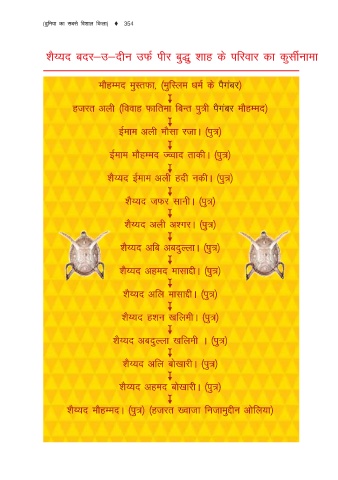 (दुनिया का सबसे विशाल किला) ♦ 354
शैय्यद बदर–उ–दीन उर्फ पीर बुद्धु शाह के परिवार का कुर्सीनामा
मौहम्मद मुस्तफा, (मुस्लिम धर्म के पैगंबर)
हजरत अली (विवाह फातिमा बिन्त पुत्री पैगंबर मौहम्मद)
ईमाम अली मौसा रजा। (पुत्र)
ईमाम मौहम्मद ज्वाद ताकी। (पुत्र)
शैय्यद ईमाम अली हदी नकी। (पुत्र)
शैय्यद जफर सानी। (पुत्र)
शैय्यद अली अश्गर। (पुत्र)
शैय्यद अबि अबदुल्ला। (पुत्र)
शैय्यद अहमद मासाद्दी। (पुत्र)
शैय्यद अलि मासाद्दी। (पुत्र)
शैय्यद हशन खलिमी। (पुत्र)
शैय्यद अबदुल्ला खलिमी । (पुत्र)
शैय्यद अलि बोखारी। (पुत्र)
शैय्यद अहमद बोखारी। (पुत्र)
शैय्यद मौहम्मद। (पुत्र) (हजरत ख्वाजा निजामुद्दीन ओलिया)